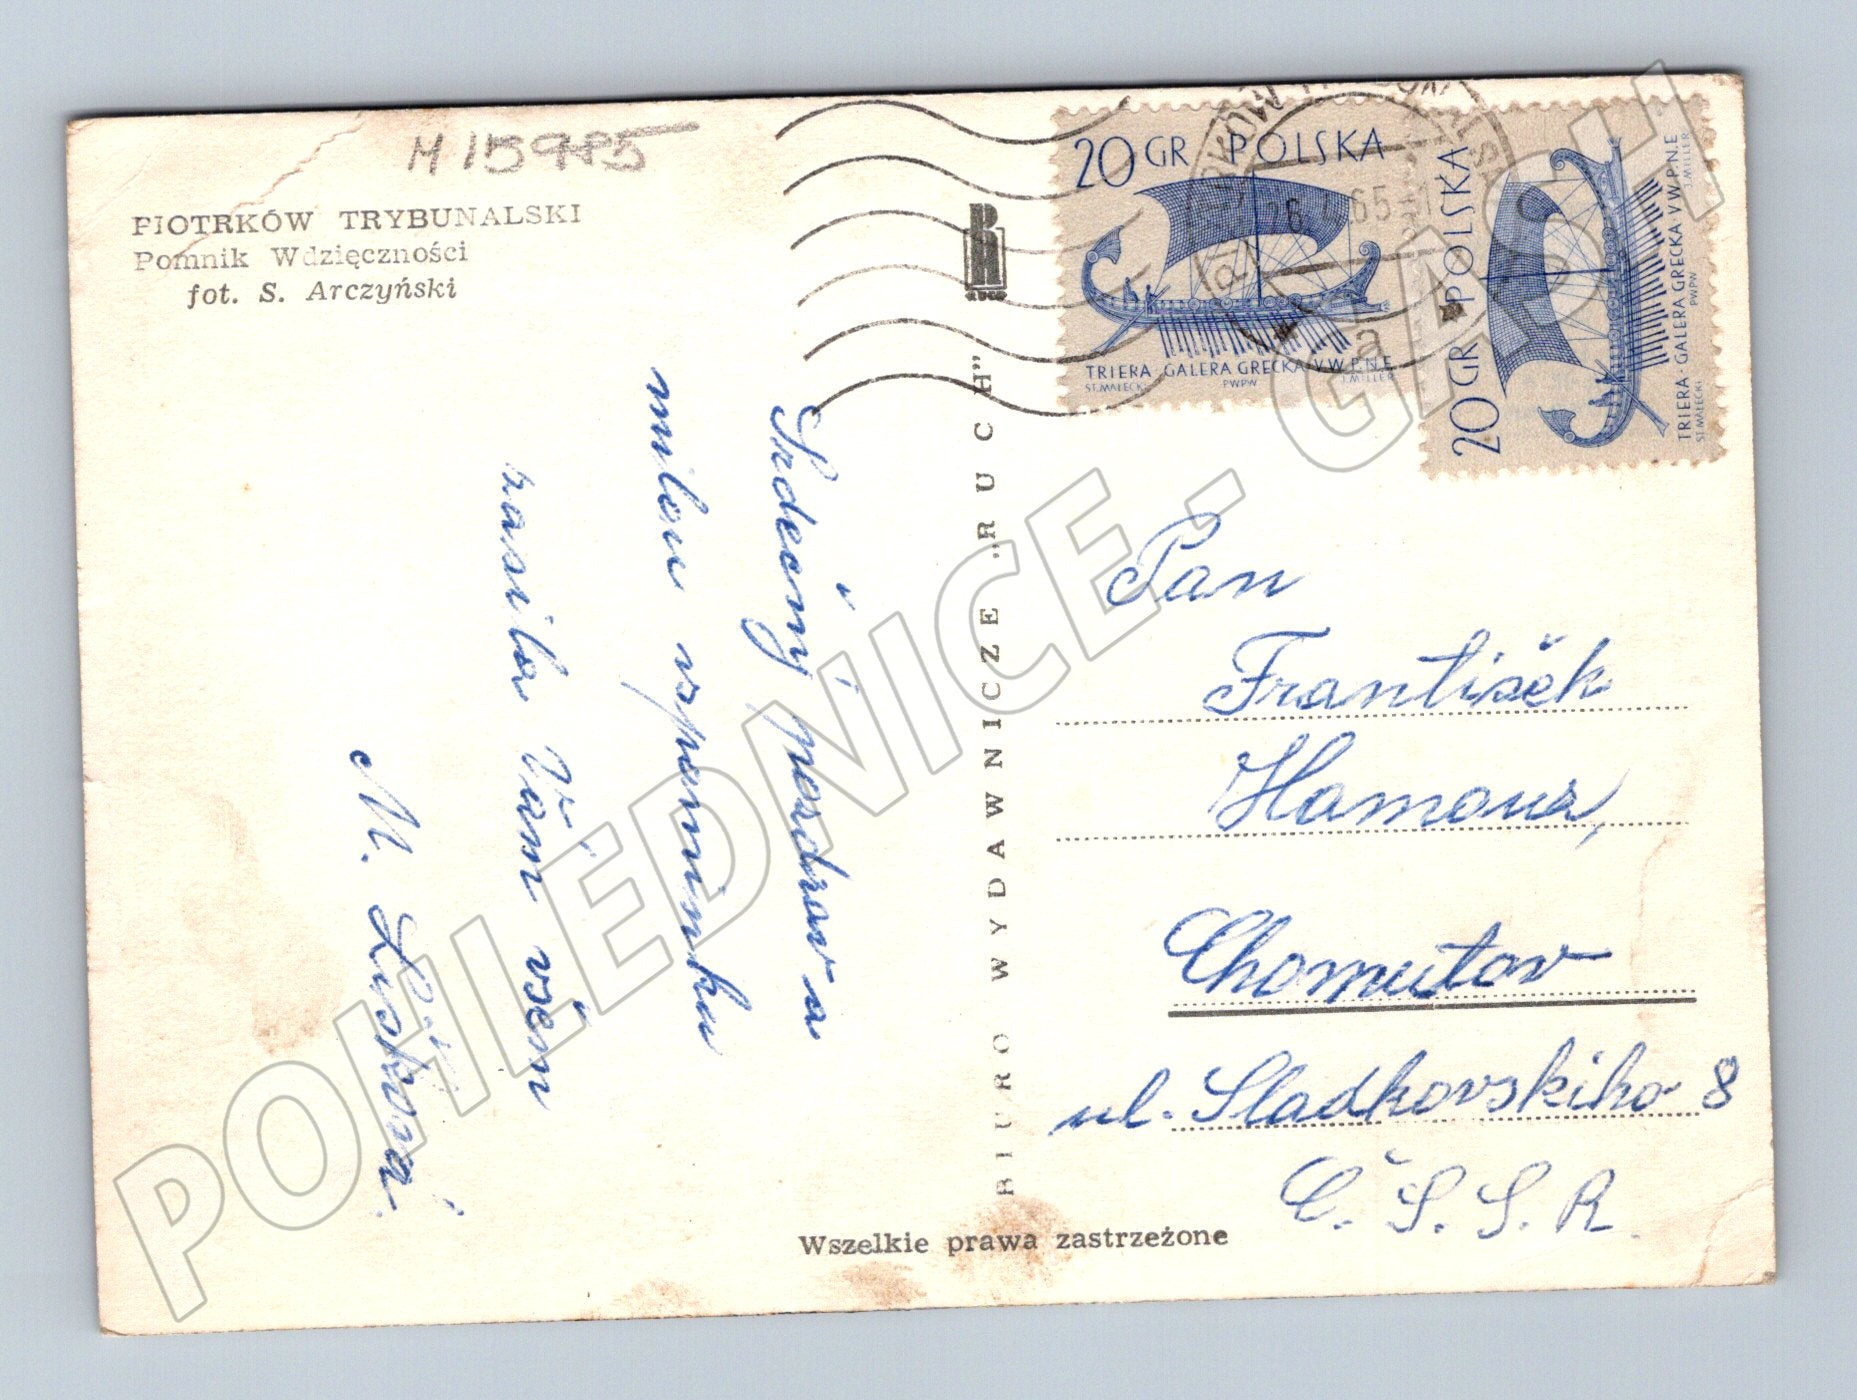 M 15985
PIOTRKÓW TRYBUNALSKI
Pomnik Wdzięczności
fot. S. Arczyński
Srdečný pozdrav a
milou vzpomínku
zasílá Vám všem
M. Lišková
BIURO WYDAWNICZE „RUCH"
RUCH
20 GR POLSKA
TRIERA GALERA GRECKA V W.P.N.E
ST. MAŁECKI PWPW J. MILLER
20 GR POLSKA
TRIERA - GALERA GRECKA V W.P.N.E
ST. MAŁECKI PWPW J. MILLER
65
a
Pan
František
Hamouz,
Chomutov
ul. Sladkovskiho 8
Č. S. S. R.
Wszelkie prawa zastrzeżone
POHLEDNICE - GASCH